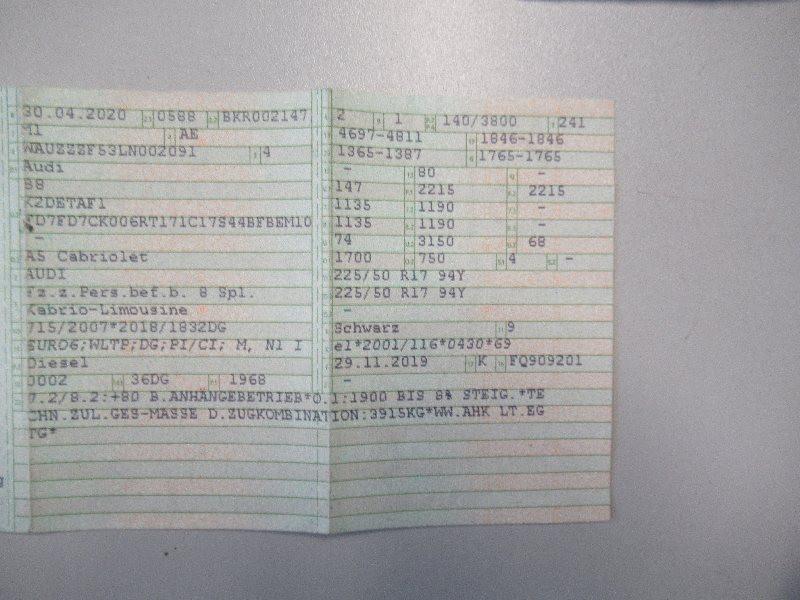 30.04.2020 0588 BKR002147
M1 AE
WAUZZZF53LN002091 4
Audi
B8
K2DETAF1
FD7FD7CK006RT171C17S44BFBEM10
-
A5 Cabriolet
AUDI
Fz.z.Pers.bef.b. 8 Spl.
Kabrio-Limousine
715/2007*2018/1832DG
EURO6;WLTP;DG;PI/CI; M, N1 I
Diesel
0002 36DG 1968
2 1 140/3800 241
4697-4811 1846-1846
1365-1387 1765-1765
- 80 -
147 2215 2215
1135 1190 -
1135 1190 -
74 3150 68
1700 750 4 -
225/50 R17 94Y
225/50 R17 94Y
-
Schwarz 9
e1*2001/116*0430*69
29.11.2019 K FQ909201
-
7.2/8.2:+80 B.ANHÄNGEBETRIEB*O.1:1900 BIS 8% STEIG.*TE
CHN.ZUL.GES-MASSE D.ZUGKOMBINATION:3915KG*WW.AHK LT.EG
TG*